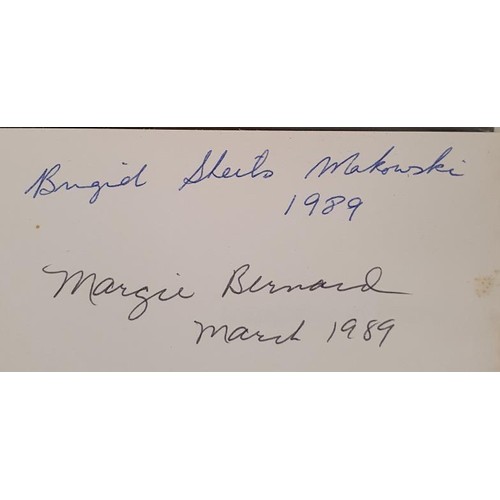 Brigid Sheils Makowski
1989
Margie Bernard
March 1989